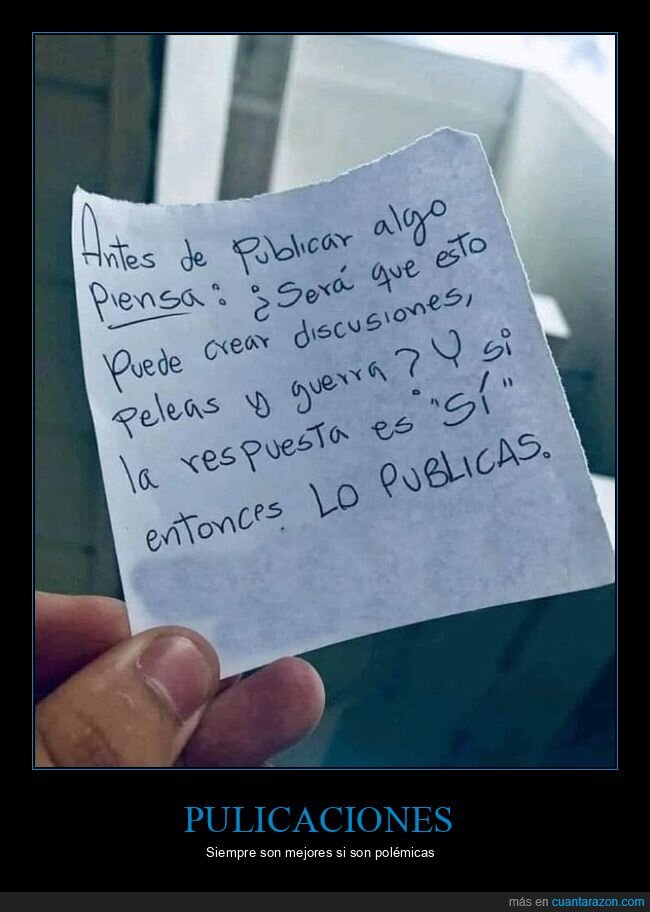 Antes de Publicar algo
Piensa: ¿Será que esto
Puede crear discusiones,
Peleas y guerra? Y si
la respuesta es "SÍ"
entonces LO PUBLICAS.
PULICACIONES
Siempre son mejores si son polémicas
más en cuantarazon.com